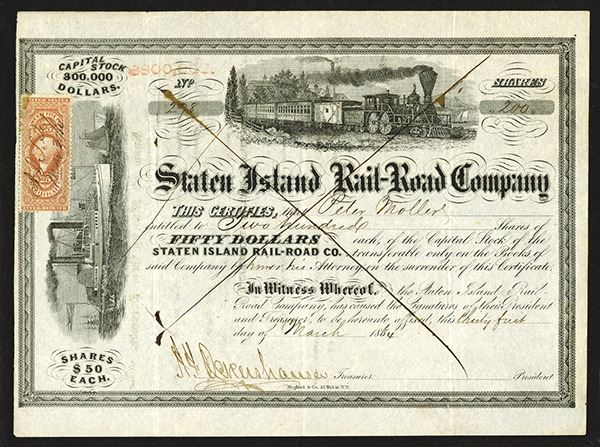 CAPITAL STOCK
800,000
DOLLARS.
No
SHARES
200
Staten Island Rail-Road Company
THIS CERTIFIES, that Peter Moller
entitled to Two Hundred Shares of
FIFTY DOLLARS each, of the Capital Stock of the
STATEN ISLAND RAIL-ROAD CO. transferable only on the Books of
said Company by him or his Attorney on the surrender of this Certificate.
In Witness Whereof, the Staten Island Rail-
Road Company, has caused the Signatures of their President
and Treasurer to be hereunto affixed, this thirty first
day of March 1864
SHARES
$50
EACH.
Treasurer.
President